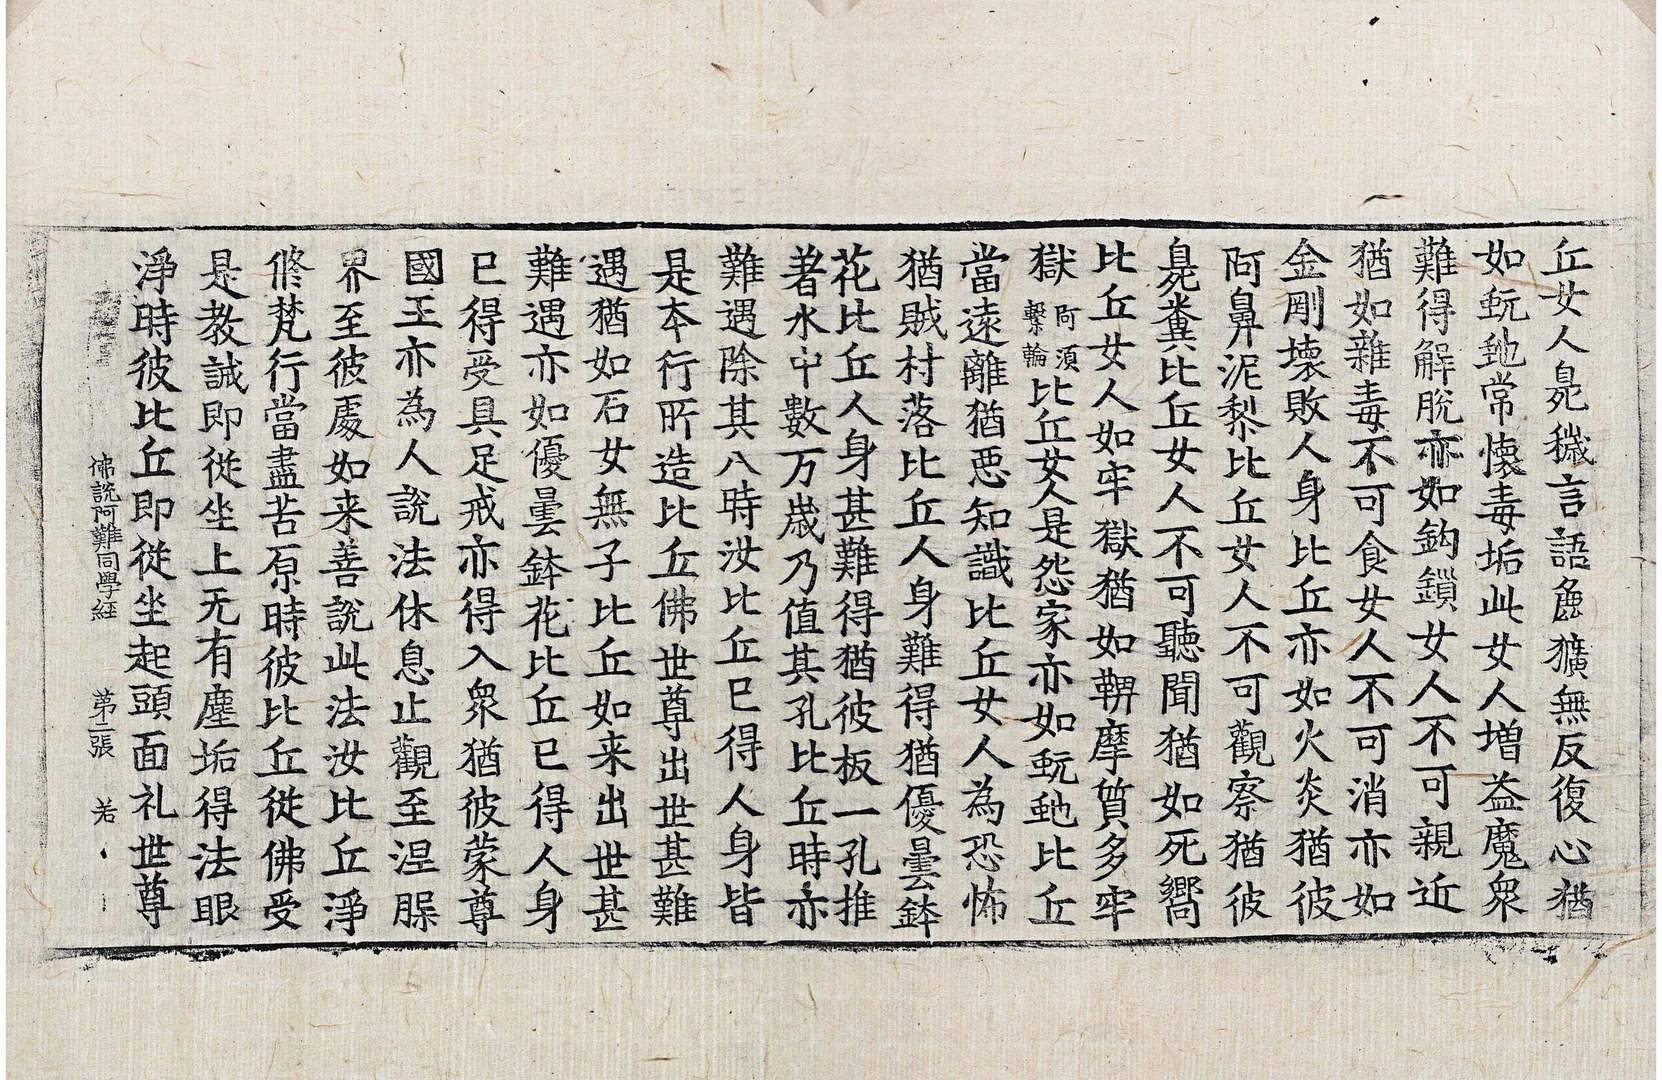 丘女人臰穢言語麁獷無反復心猶
如蚖虵常懷毒垢此女人增益魔衆
難得解脫亦如鈎鎖女人不可親近
猶如雜毒不可食女人不可消亦如
金剛壞敗人身比丘亦如火炎猶彼
阿鼻泥梨比丘女人不可觀察猶彼
臰糞比丘女人不可聽聞猶如死嚮
比丘女人如牢獄猶如鞞摩質多牢
獄阿須繫輪比丘女人是怨家亦如蚖虵比丘
當遠離猶惡知識比丘女人為恐怖
猶賊村落比丘人身難得猶優曇鉢
花比丘人身甚難得猶彼板一孔推
著水中數万歲乃值其孔比丘時亦
難遇除其八時汝比丘已得人身皆
是本行所造比丘佛世尊出世甚難
遇猶如石女無子比丘如来出世甚
難遇亦如優曇鉢花比丘已得人身
已得受具足戒亦得入衆猶彼蒙尊
國王亦為人說法休息止觀至涅槃
界至彼處如来善說此法汝比丘淨
修梵行當盡苦原時彼比丘從佛受
是教誡即從坐上无有塵垢得法眼
淨時彼比丘即從坐起頭面礼世尊
佛說阿難同學經 第二張 若